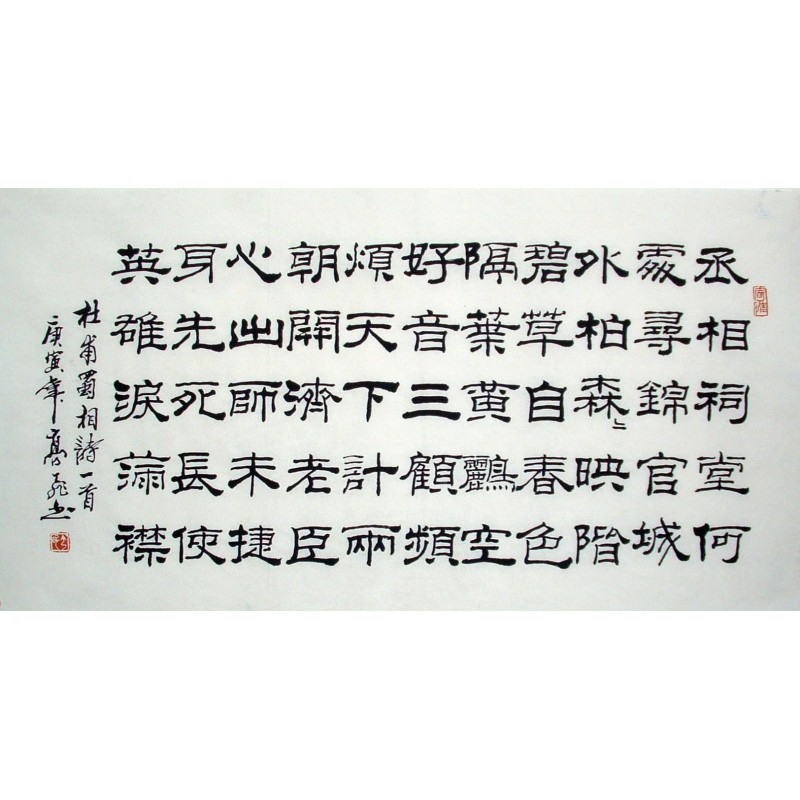 丞相祠堂何
處尋錦官城
外柏森〻映階
碧草自春色
隔葉黃鸝空
好音三顧頻
煩天下計兩
朝開濟老臣
心出師未捷
身先死長使
英雄淚滿襟
杜甫蜀相詩一首
庚寅年高飛书